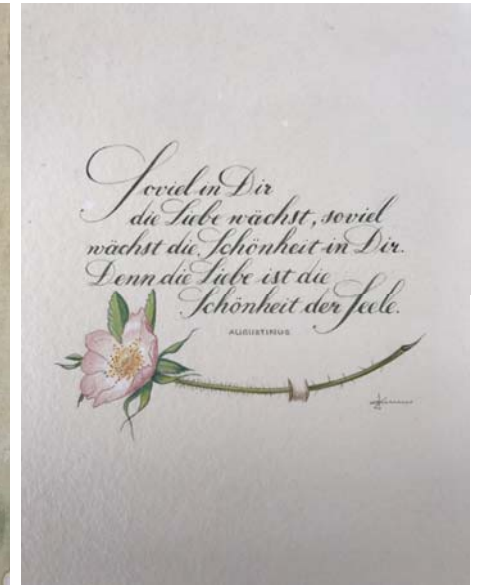 Soviel in Dir
die Liebe wächst, soviel
wächst die Schönheit in Dir.
Denn die Liebe ist die
Schönheit der Seele.
AUGUSTINUS